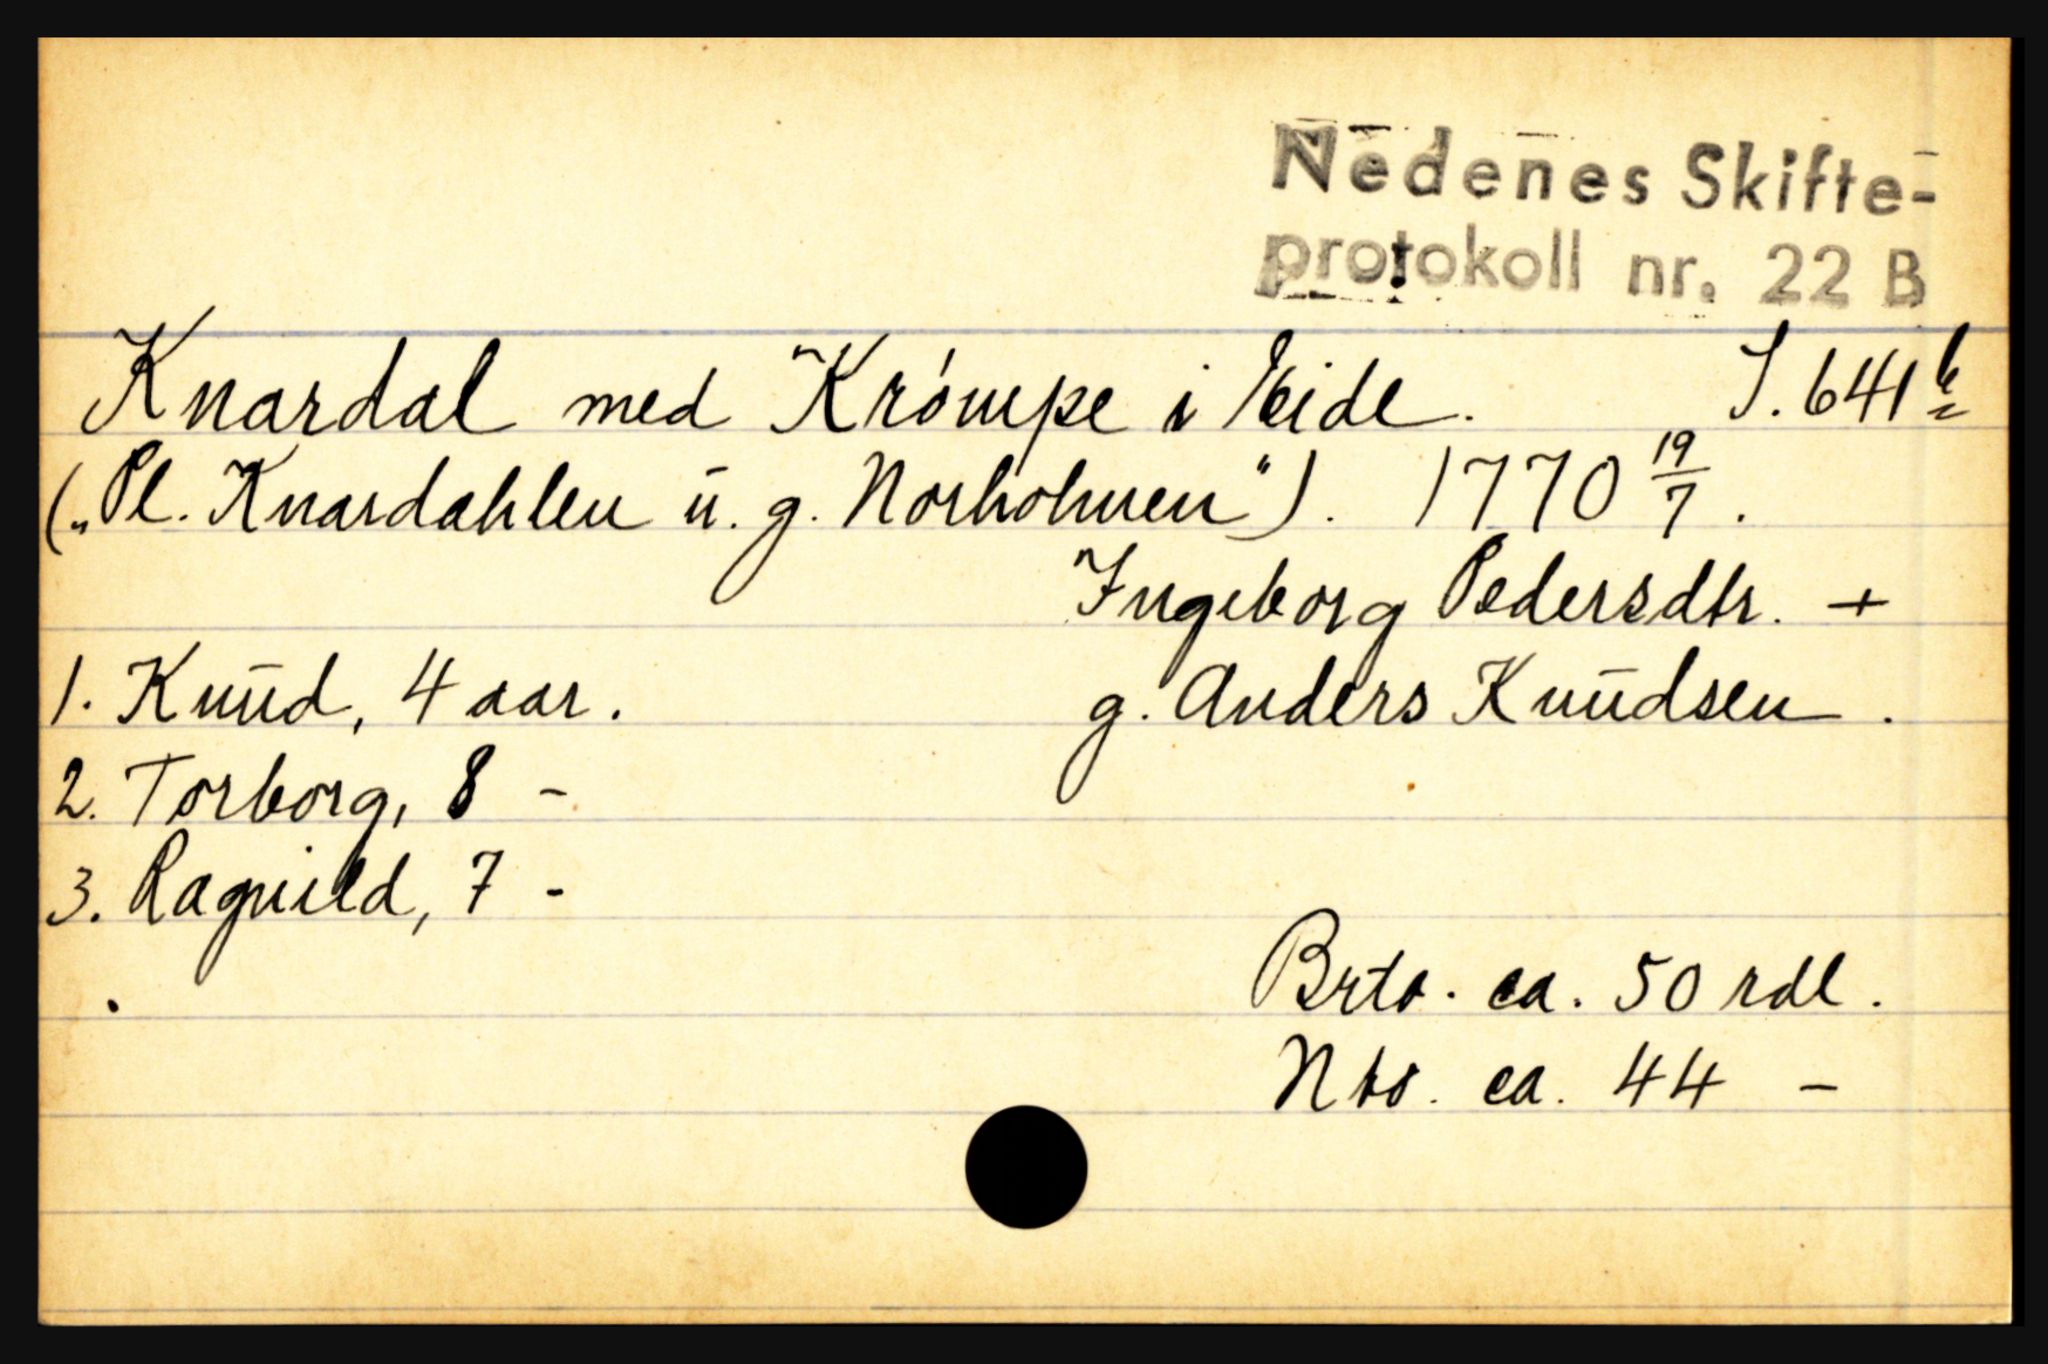 Nedenes Skifte-
protokoll nr. 22 B
Knardal med Krómpe i Eide. S. 641 b
(„Pl. Knardahlen ū. g. Norholmen“). 1770 19/7.
Ingeborg Pedersdtr. +
1. Knūd, 4 aar. g. Anders Knūdsen.
2. Torborg, 8 -
3. Ragnild, 7 -
Brto. ca. 50 rdl.
Nto. ca. 44 -